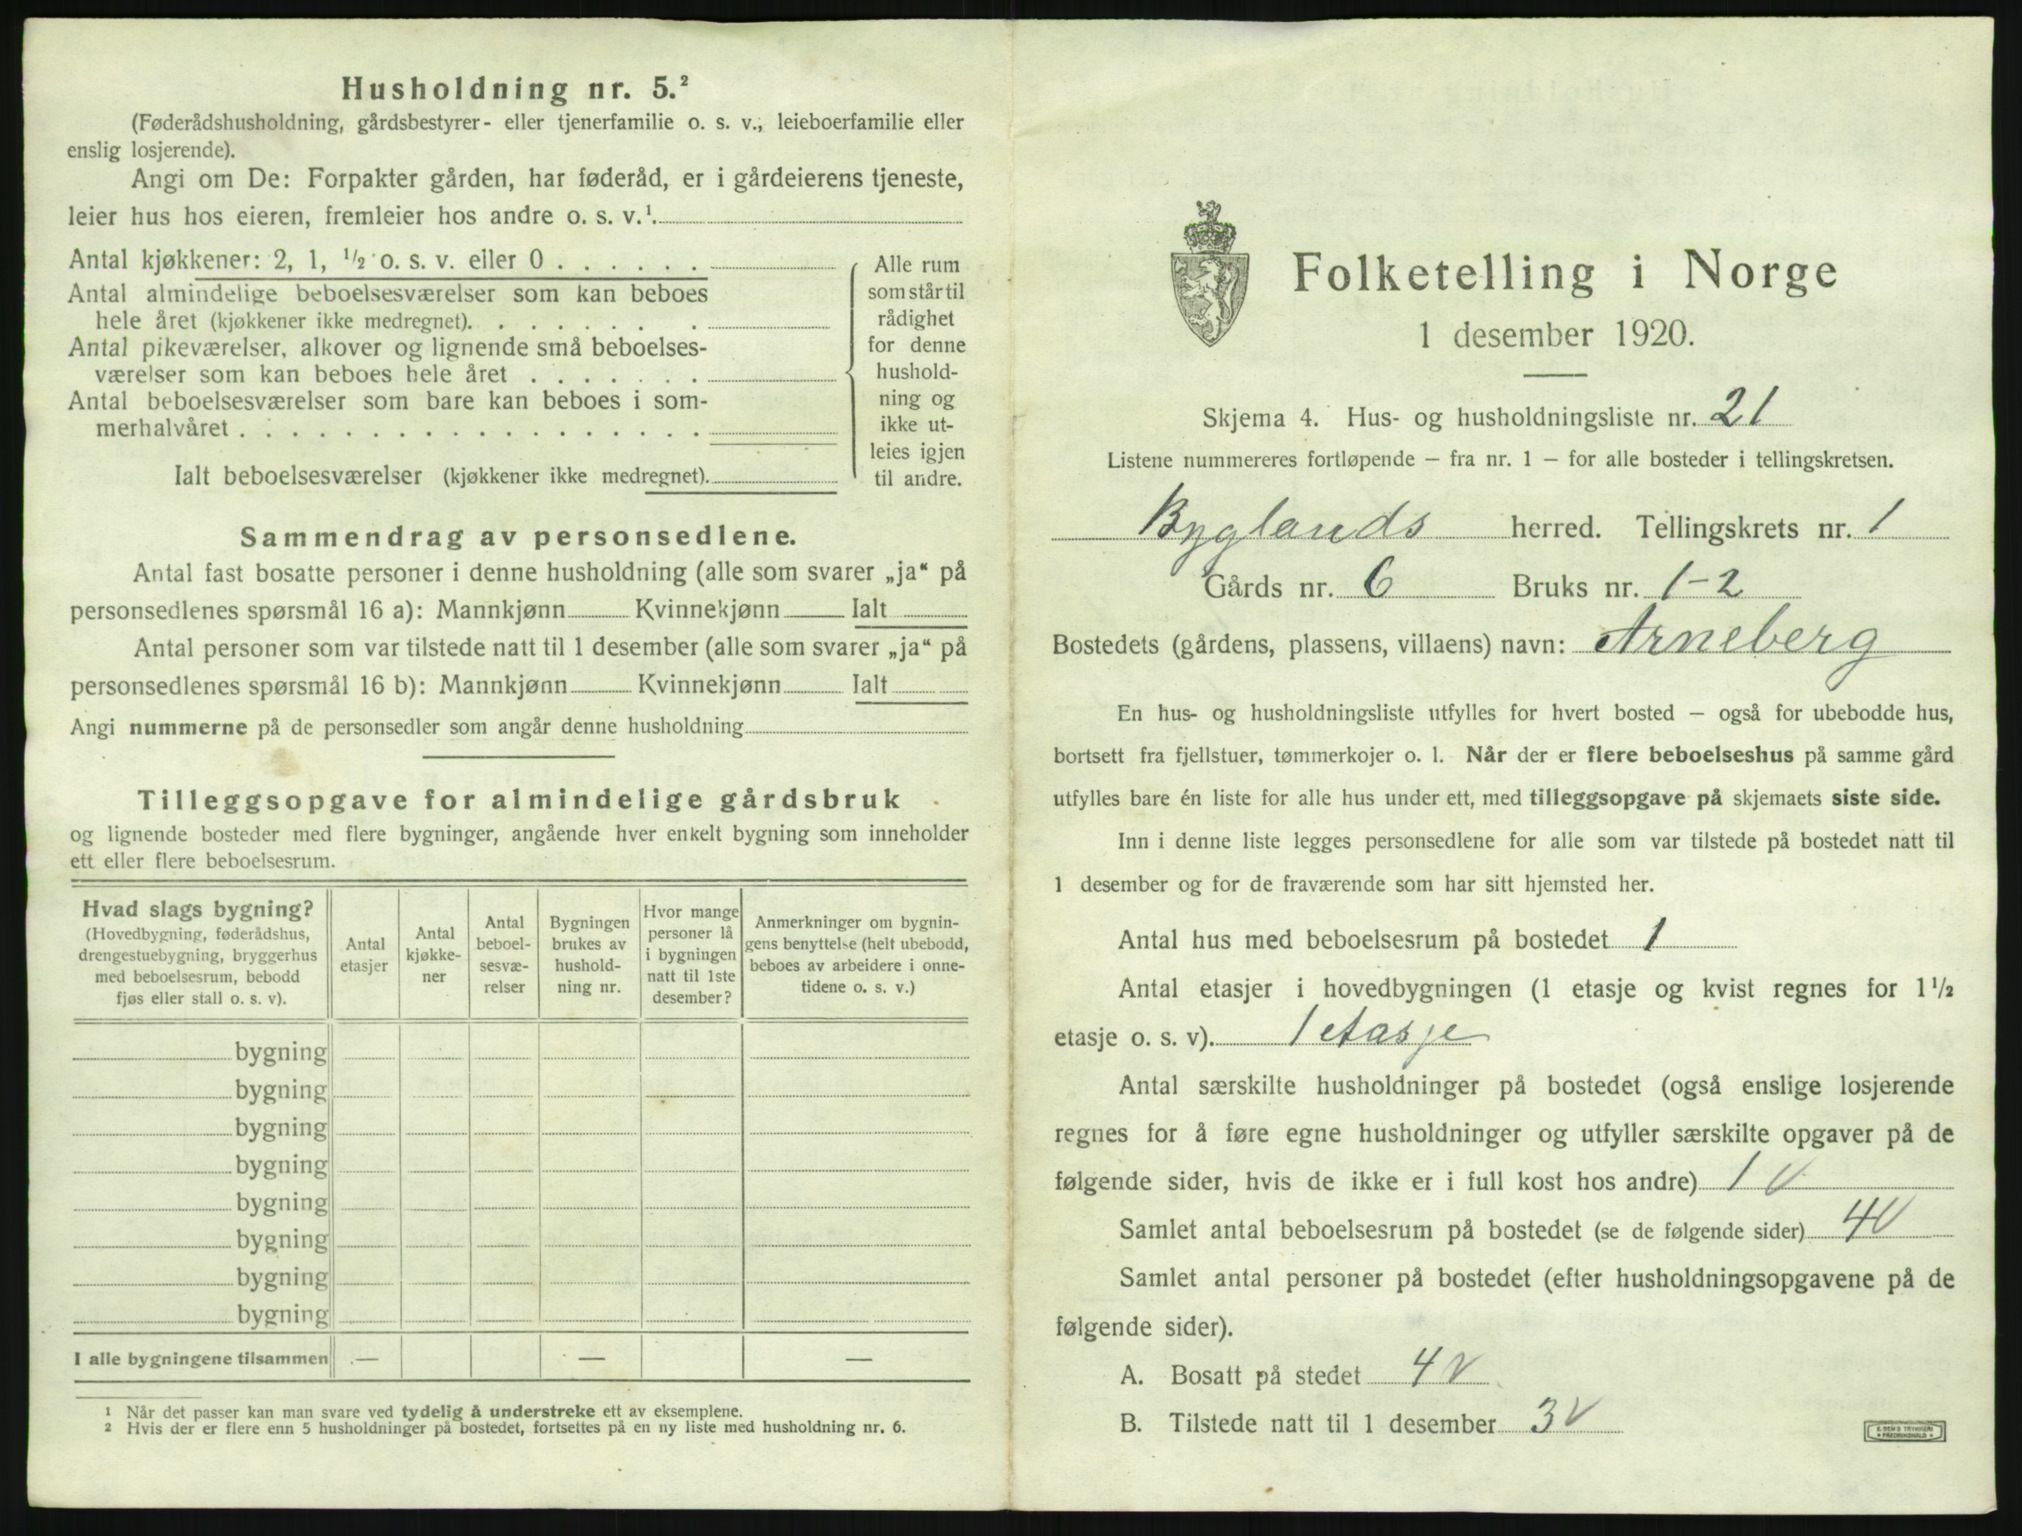 Husholdning nr. 5.²
(Føderådshusholdning, gårdsbestyrer- eller tjenerfamilie o. s. v., leieboerfamilie eller
enslig losjerende).
Angi om De: Forpakter gården, har føderåd, er i gårdeierens tjeneste,
leier hus hos eieren, fremleier hos andre o. s. v.¹
Antal kjøkkener: 2, 1, ½ o. s. v. eller 0
Antal almindelige beboelsesværelser som kan beboes
hele året (kjøkkener ikke medregnet).
Antal pikeværelser, alkover og lignende små beboelses-
værelser som kan beboes hele året
Antal beboelsesværelser som bare kan beboes i som-
merhalvåret
Ialt beboelsesværelser (kjøkkener ikke medregnet).
Alle rum
som står til
rådighet
for denne
hushold-
ning og
ikke ut-
leies igjen
til andre.
Sammendrag av personsedlene.
Antal fast bosatte personer i denne husholdning (alle som svarer „ja“ på
personsedlenes spørsmål 16 a): Mannkjønn Kvinnekjønn Ialt
Antal personer som var tilstede natt til 1 desember (alle som svarer „ja“ på
personsedlenes spørsmål 16 b): Mannkjønn Kvinnekjønn Ialt
Angi nummerne på de personsedler som angår denne husholdning
Tilleggsopgave for almindelige gårdsbruk
og lignende bosteder med flere bygninger, angående hver enkelt bygning som inneholder
ett eller flere beboelsesrum.
Hvad slags bygning?
(Hovedbygning, føderådshus,
drengestuebygning, bryggerhus
med beboelsesrum, bebodd
fjøs eller stall o. s. v).
Antal
etasjer
Antal
kjøkke-
ner
Antal
beboel-
sesvæ-
relser
Bygningen
brukes av
hushold-
ning nr.
Hvor mange
personer lå
i bygningen
natt til 1ste
desember?
Anmerkninger om bygnin-
gens benyttelse (helt ubebodd,
beboes av arbeidere i onne-
tidene o. s. v.)
bygning
bygning
bygning
bygning
bygning
bygning
bygning
bygning
I alle bygningene tilsammen — — —
1 Når det passer kan man svare ved tydelig å understreke ett av eksemplene.
2 Hvis der er flere enn 5 husholdninger på bostedet, fortsettes på en ny liste med husholdning nr. 6.
Folketelling i Norge
1 desember 1920.
Skjema 4. Hus- og husholdningsliste nr. 21
Listene nummereres fortløpende – fra nr. 1 – for alle bosteder i tellingskretsen.
Byglands herred. Tellingskrets nr. 1
Gårds nr. 6 Bruks nr. 1-2
Bostedets (gårdens, plassens, villaens) navn: Arneberg
En hus- og husholdningsliste utfylles for hvert bosted – også for ubebodde hus,
bortsett fra fjellstuer, tømmerkojer o. l. Når der er flere beboelseshus på samme gård
utfylles bare én liste for alle hus under ett, med tilleggsopgave på skjemaets siste side.
Inn i denne liste legges personsedlene for alle som var tilstede på bostedet natt til
1 desember og for de fraværende som har sitt hjemsted her.
Antal hus med beboelsesrum på bostedet 1
Antal etasjer i hovedbygningen (1 etasje og kvist regnes for 1½
etasje o. s. v). 1 etasje
Antal særskilte husholdninger på bostedet (også enslige losjerende
regnes for å føre egne husholdninger og utfyller særskilte opgaver på de
følgende sider, hvis de ikke er i full kost hos andre) 1 V
Samlet antal beboelsesrum på bostedet (se de følgende sider) 4 V
Samlet antal personer på bostedet (efter husholdningsopgavene på de
følgende sider).
A. Bosatt på stedet 4 V
B. Tilstede natt til 1 desember 3 V
E. SEM'S TRYKKERI
FREDRIKSHALD